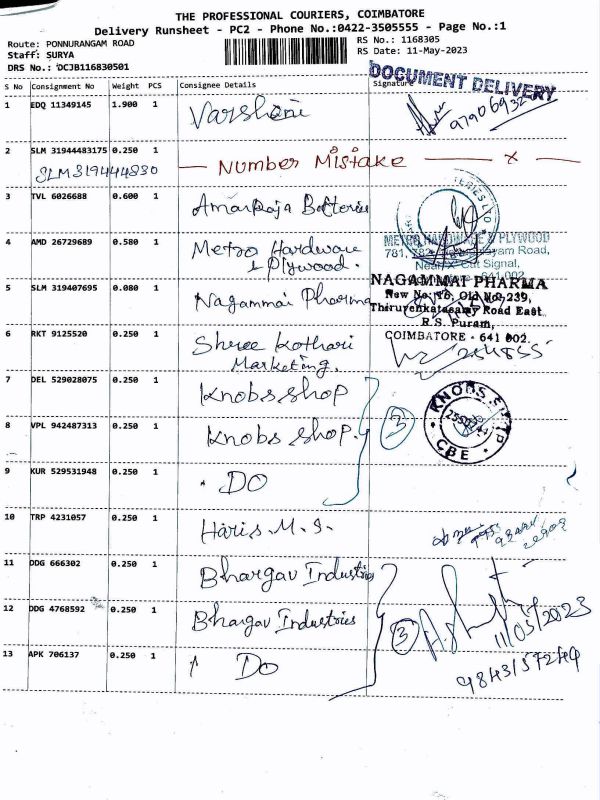 THE PROFESSIONAL COURIERS, COIMBATORE
Delivery Runsheet - PC2 - Phone No.:0422-3505555 - Page No.:1
Route: PONNURANGAM ROAD
RS No.: 1168305
Staff: SURYA
RS Date: 11-May-2023
DRS No.: DCJB116830501
DOCUMENT DELIVERY
S No Consignment No Weight PCS Consignee Details Signature
1 EDQ 11349145 1.900 1 Varshani
9790693
2 SLM 31944483175 0.250 1 Number Mistake x
SLM319444830
3 TVL 6026688 0.600 1 AmarRaja Batteries
4 AMD 26729689 0.580 1 Metro Hardware
& Plywood.
METRO HARDWARE & PLYWOOD
Road,
Cut Signal,
641 002
5 SLM 319407695 0.080 1 Nagammai Pharma
NAGAMMAI PHARMA
New No: Old No 239,
Thiruvenkatasamy Road East
R.S. Puram,
COIMBATORE - 641 002.
6 RKT 9125520 0.250 1 Shree Kothari
Marketing.
254855
7 DEL 529028075 0.250 1 Knobs shop
KNOBS
CBE
8 VPL 942487313 0.250 1 Knobs shop. 3
9 KUR 529531948 0.250 1 DO
10 TRP 4231057 0.250 1 Haris. M. S.
11 DDG 666302 0.250 1 Bhargav Industries
12 DDG 4768592 0.250 1 Bhargav Industries 3
11/05/2023
13 APK 706137 0.250 1 DO